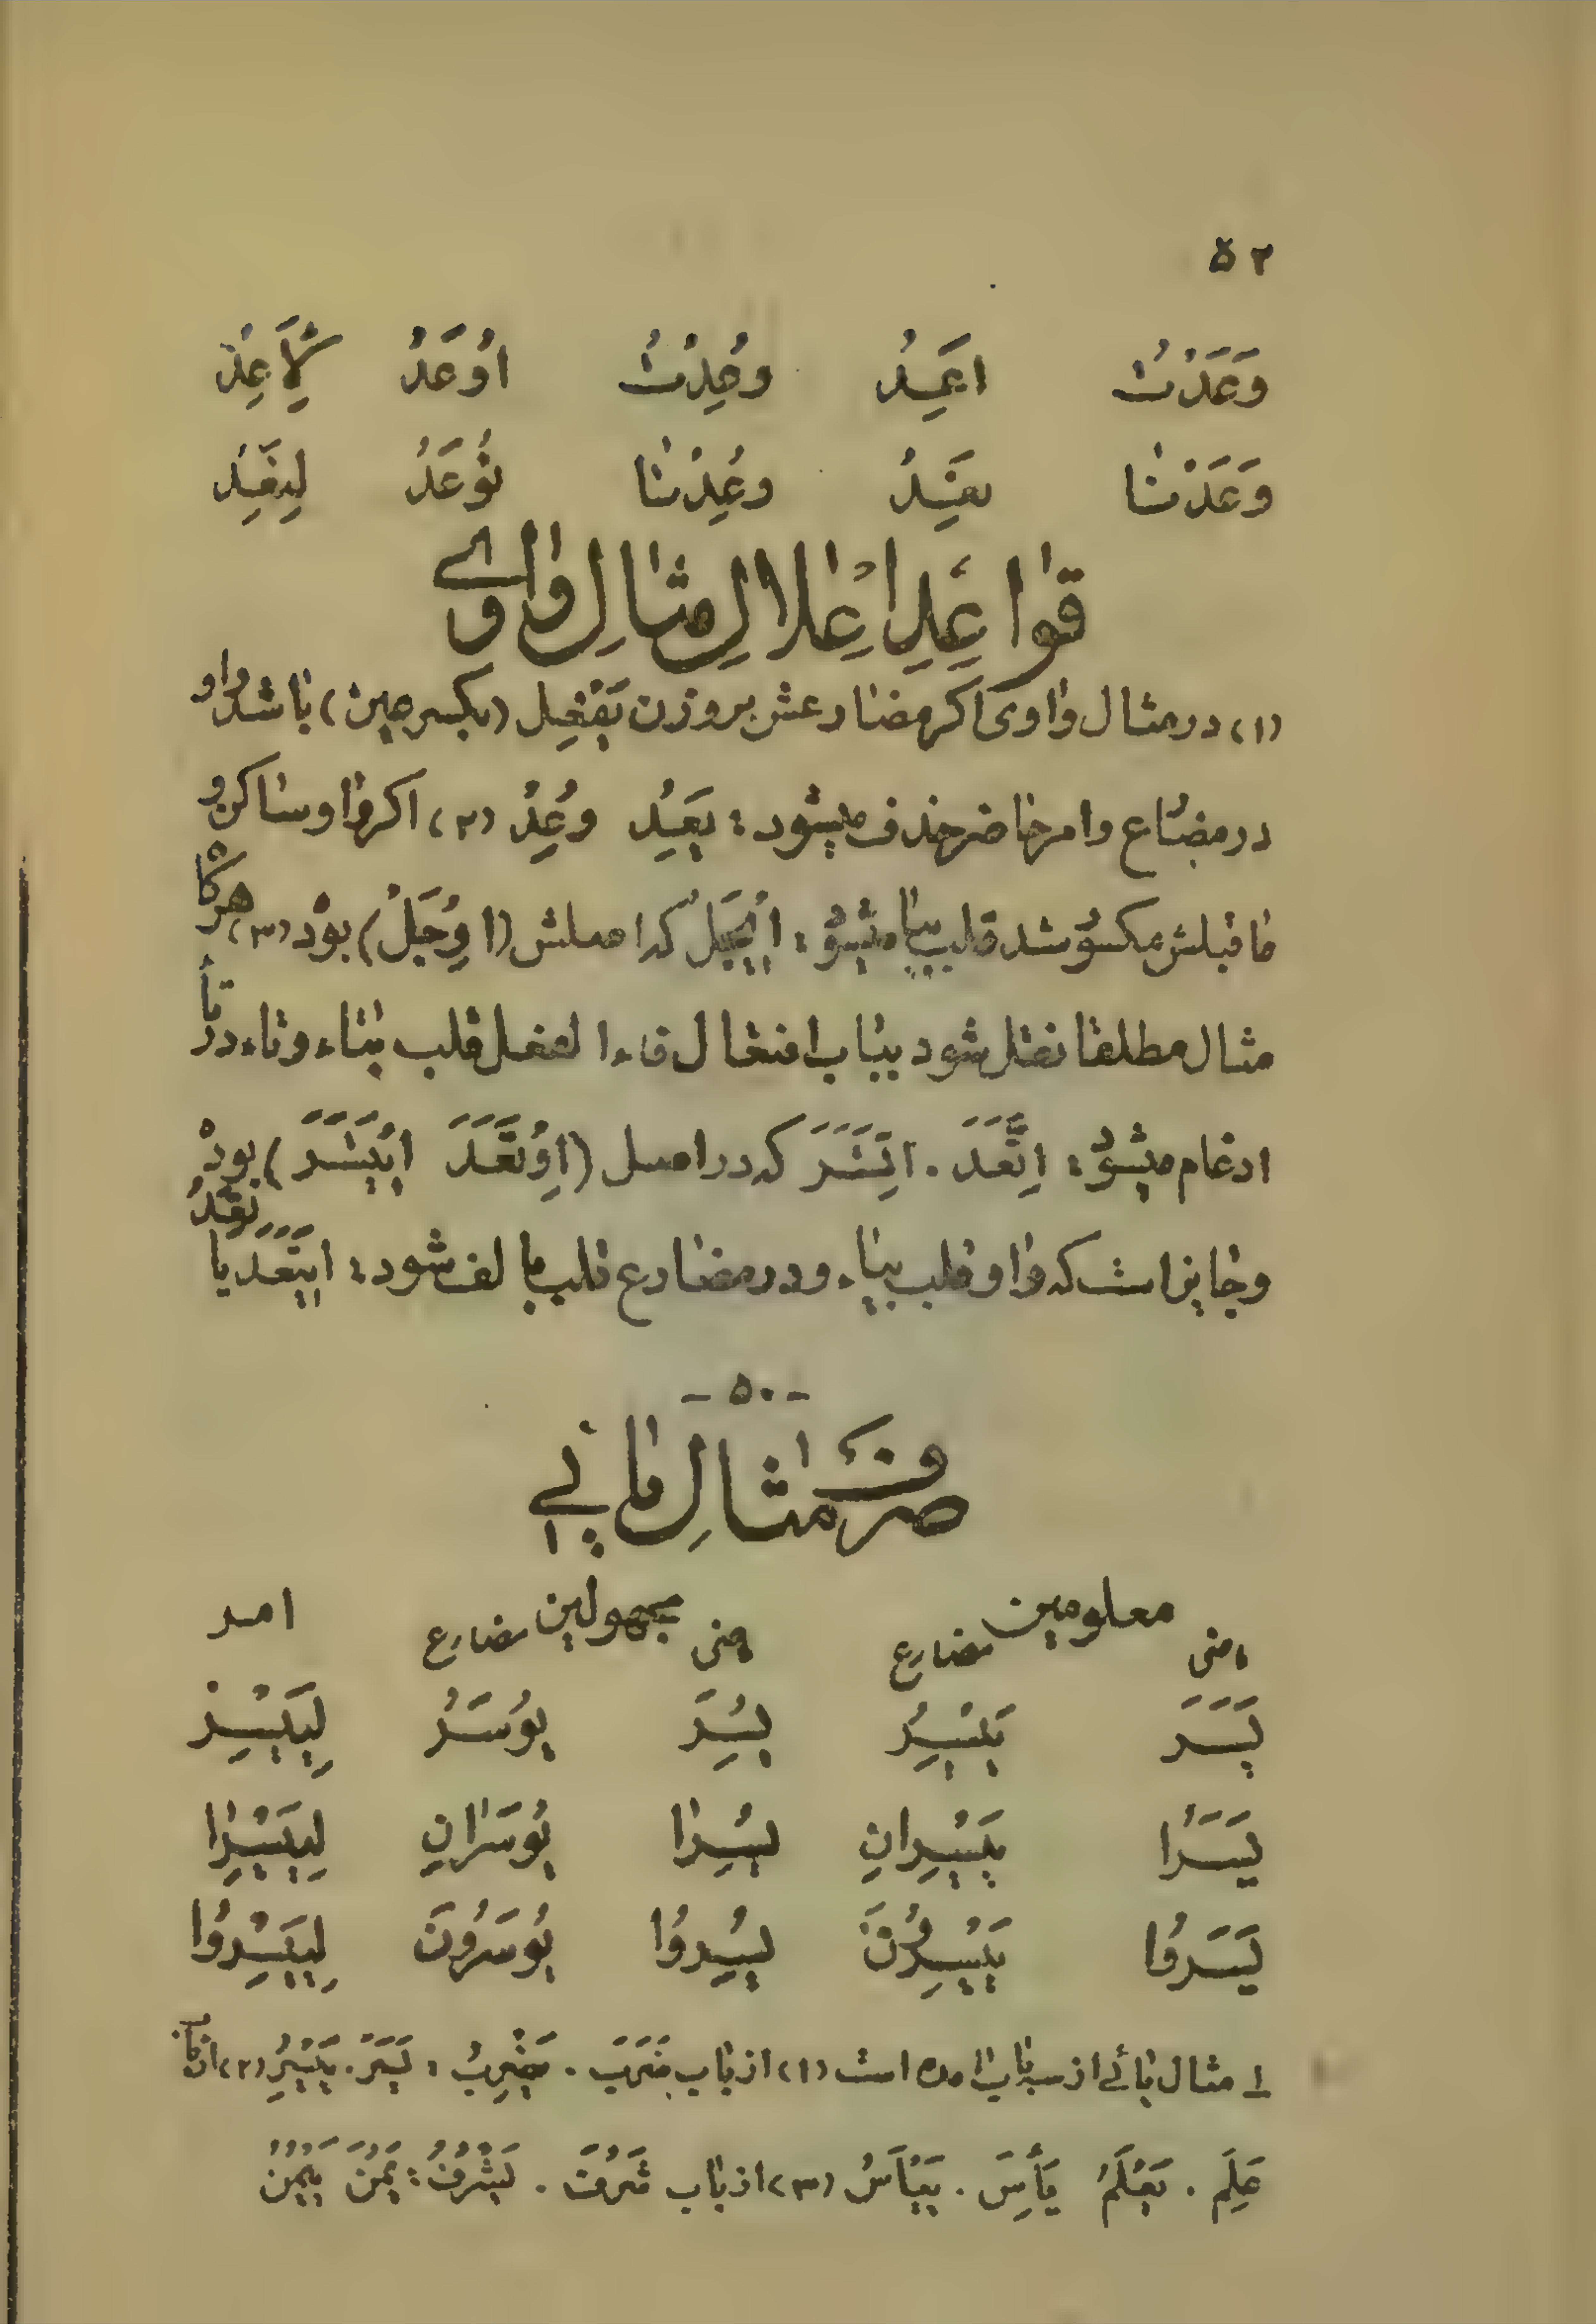 ۵۲
وَعَدْتُ اَعِدُ وُعِدْتُ اُوعَدُ لِاَعِدْ
وَعَدْنا نَعِدُ وُعِدْنا نُوعَدُ لِنَعِدْ
قواعِدِ اِعْلالِ مثالِ واوی
(۱) در مثال واوی اگر مضارعش بر وزن یَفْعِل (بکسر عین) باشد واو
در مضارع وامر حاضر حذف میشود: یَعِدُ وعِدْ (۲) اگر واو ساکن و
ماقبلش مکسور شد قلب بیا میشود: اِیجَلْ که اصلش (اِوْجَلْ) بود (۳) هرگاه
مثال مطلقا نقل شود بباب افتعال فاء الفعل قلب بتاء وتاء در تاء
ادغام میشود: اِتَّعَدَ . اِتَّسَرَ که در اصل (اِوْتَعَدَ اِیْتَسَرَ) بود
وجایز است که واو قلب بیاء ودر مضارع قلب بالف شود: اِیتَعَدَ یاتَعِدُ
- ۵۰ -
صرفِ مثالِ یائی
معلومین مجهولین امر
ماضی مضارع ماضی مضارع
یَسَرَ یَیْسِرُ یُسِرَ یُوسَرُ لِیَیْسِرْ
یَسَرا یَیْسِرانِ یُسِرا یُوسَرانِ لِیَیْسِرا
یَسَروا یَیْسِرُونَ یُسِرُوا یُوسَرُونَ لِیَیْسِرُوا
۱ مثال یائی از سه باب آمده است (۱) از باب ضَرَبَ . یَضْرِبُ : یَسَرَ . یَیْسِرُ (۲) از باب
عَلِمَ . یَعْلَمُ یَأِسَ . یَیْأَسُ (۳) از باب شَرُفَ . یَشْرُفُ : یَمُنَ یَیْمُنُ